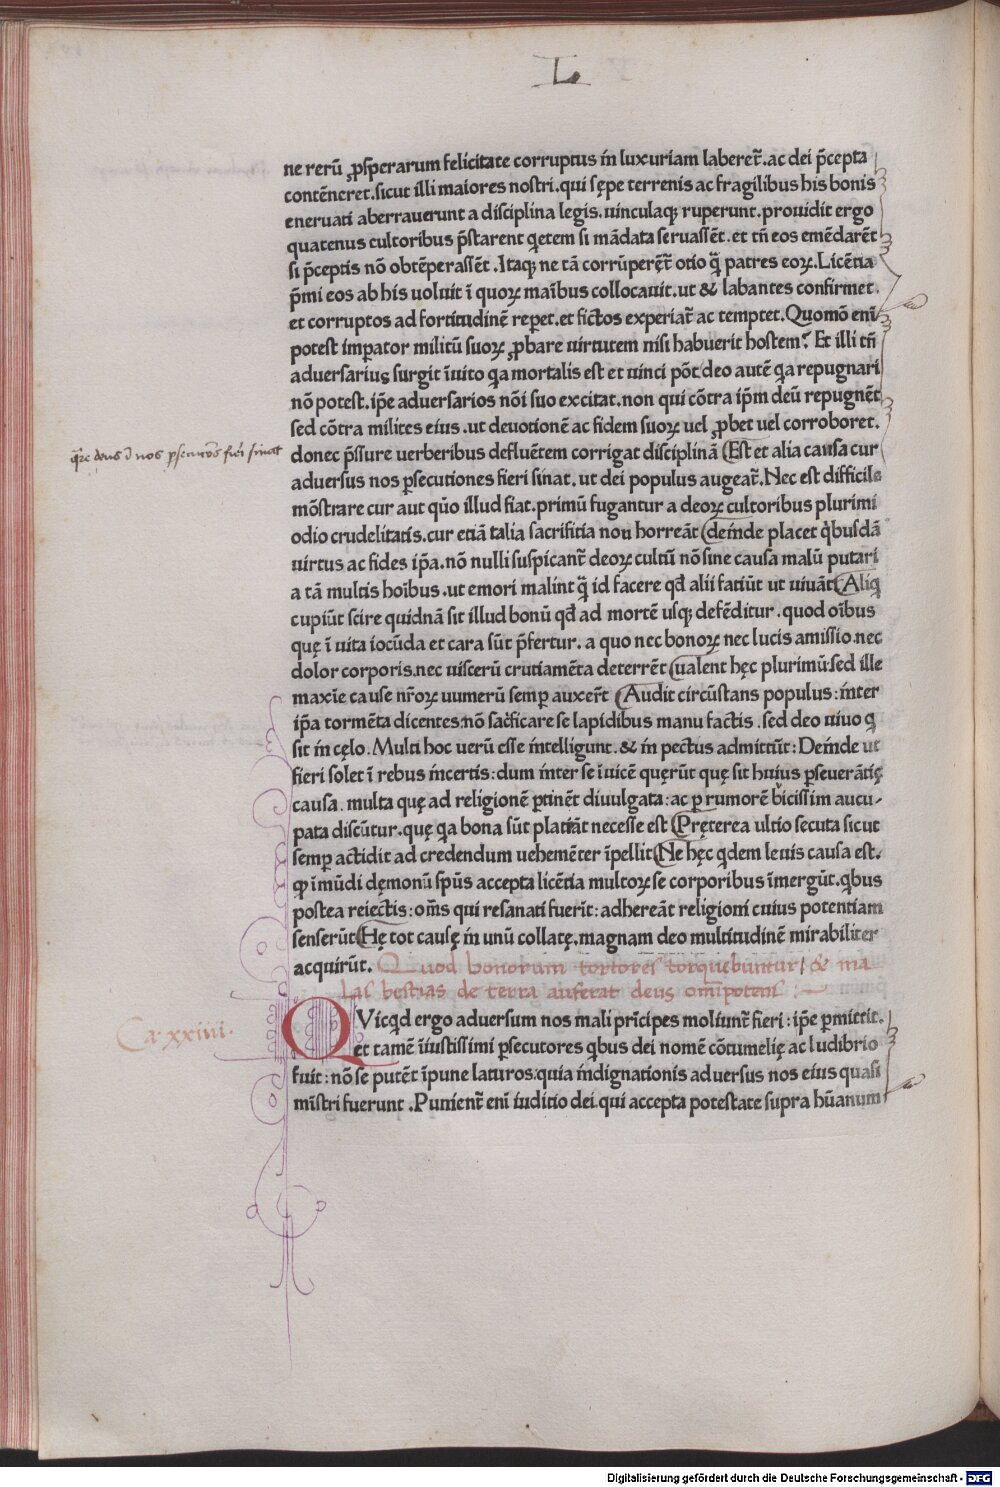 L
ne rerū ꝓsperarum felicitate corruptus in luxuriam laberet̄. ac dei p̄cepta
contēneret. sicut illi maiores nostri. qui sępe terrenis ac fragilibus his bonis
eneruati aberrauerunt a disciplina legis. uinculaq; ruperunt. prouidit ergo
quatenus cultoribus p̄starent q̇etem si mādata seruassēt. et tn̄ eos emēdarēt
si p̄ceptis nō obtēperassēt. Itaq; ne tā corrūperęt̄ otio q̄ patres eoꝝ. Licētia
p̄mi eos ab his uoluit ī quoꝝ māibus collocauit. ut & labantes confirmet.
et corruptos ad fortitudinē reꝑet. et fictos experiat̄ ac temptet. Quomō enī
potest imꝑator militū suoꝝ ꝓbare uirtutem nisi habuerit hostem? Et illi tn̄
aduersarius surgit īuito q̇a mortalis est et uinci pōt. deo autē q̇a repugnari
nō potest. ip̄e aduersarios nōi suo excitat. non qui cōtra ip̄m deū repugnēt
sed cōtra milites eius. ut deuotionē ac fidem suoꝝ uel ꝓbet uel corroboret.
q̄re deus ī nos ꝑsecutōes fieri sinat
donec p̄ssure uerberibus defluētem corrigat disciplinā Est et alia causa cur
aduersus nos ꝑsecutiones fieri sinat, ut dei populus augeat̄. Nec est difficile
mōstrare cur aut quō illud fiat. primū fugantur a deoꝝ cultoribus plurimi
odio crudelitatis. cur etiā talia sacrifitia non horreāt deinde placet q̇busdā
uirtus ac fides ip̄a. nō nulli suspicant̄ deoꝝ cultū nō sine causa malū putari
a tā multis hoībus. ut emori malint q̄ id facere qd̄ alii fatiūt ut uiuāt Aliq̇
cupiūt scire quidnā sit illud bonū qd̄ ad mortē usq; defēditur. quod oībus
quę ī uita iocūda et cara sūt p̄fertur. a quo nec bonoꝝ nec lucis amissio. nec
dolor corporis. nec uiscerū crutiamēta deterrēt ualent hęc plurimū: sed ille
maxīe cause nr̄oꝝ numerū semꝑ auxer̄t Audit circūstans populus: inter
ip̄a tormēta dicentes: nō sac̄ficare se lapidibus manu factis. sed deo uiuo q̇
sit in cęlo. Multi hoc uerū esse intelligunt. & in pectus admittūt: Deinde ut
fieri solet ī rebus incertis: dum inter se īuicē quęrūt quę sit huius ꝑseuerātię
causa. multa quę ad religionē ꝑtinēt diuulgata: ac ꝑ rumorē bicissim aucu-
pata discūtur. quę q̇a bona sūt platiāt necesse est Pręterea ultio secuta sicut
semꝑ actidit ad credendum uehemēter īpellit Ne hęc q̇dem leuis causa est.
qꝫ īmūdi dęmonū sp̄us accepta licētia multoꝝ se corporibus īmergūt. q̇bus
postea reiectis: om̄s qui resanati fuerīt: adhereāt religioni cuius potentiam
senserūt Hę tot causę in unū collatę. magnam deo multitudinē mirabiliter
acquirūt. Quod bonorum tortores torquebuntur, & ma
las bestias de terra auferat deus om̄ipotens :~
Ca. xxiiii.
QVicq̇d ergo aduersum nos mali prīcipes moliunt̄ fieri: ip̄e ꝑmittit.
et tamē īiustissimi ꝑsecutores q̇bus dei nomē cōtumelię ac ludibrio
fuit: nō se putēt īpune laturos: quia indignationis aduersus nos eius quasi
mīstri fuerunt. Punient̄ enī iuditio dei. qui accepta potestate supra hūanum
Digitalisierung gefördert durch die Deutsche Forschungsgemeinschaft - DFG